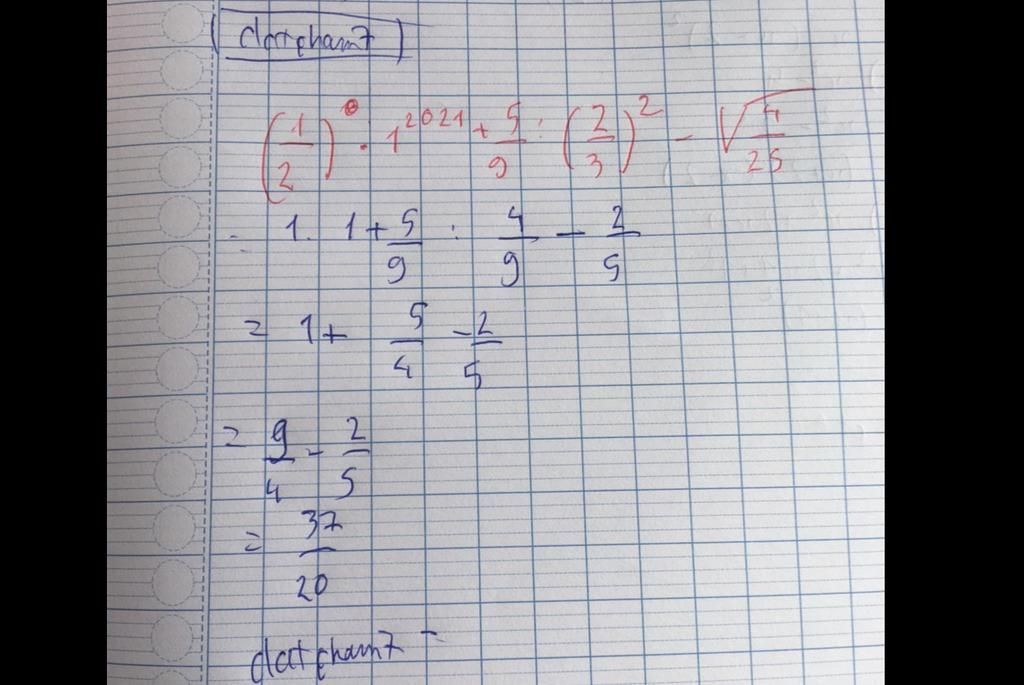 datpham7
(1/2)^0 . 1^2021 + 5/9 : (2/3)^2 - √(4/25)
= 1. 1 + 5/9 : 4/9 - 2/5
= 1 + 5/4 - 2/5
= 9/4 - 2/5
= 37/20
datpham7 -